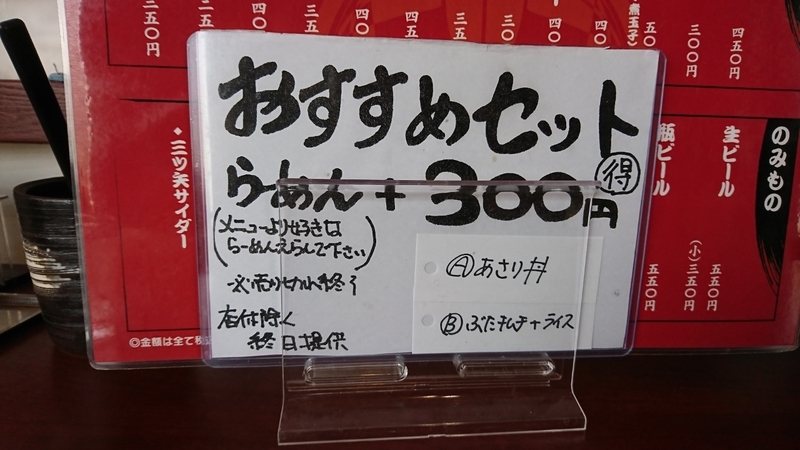 おすすめセット
らーめん + 300円 得
(メニューより好きな
らーめんえらんで下さい)
※売り切れ終了
除く
終日提供
Ⓐあさり丼
Ⓑぶたキムチ+ライス
四五〇円
三〇〇円
煮玉子)
三五〇円
のみもの
生ビール
五五〇円
(小)三五〇円
瓶ビール
五五〇円
◆三ツ矢サイダー
◎金額は全て税